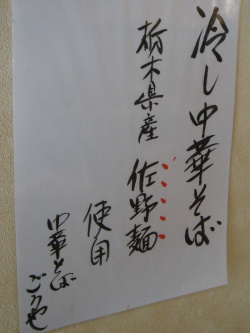 冷し中華そば
栃木県産
佐野麺
使用
中華そば
ごろや